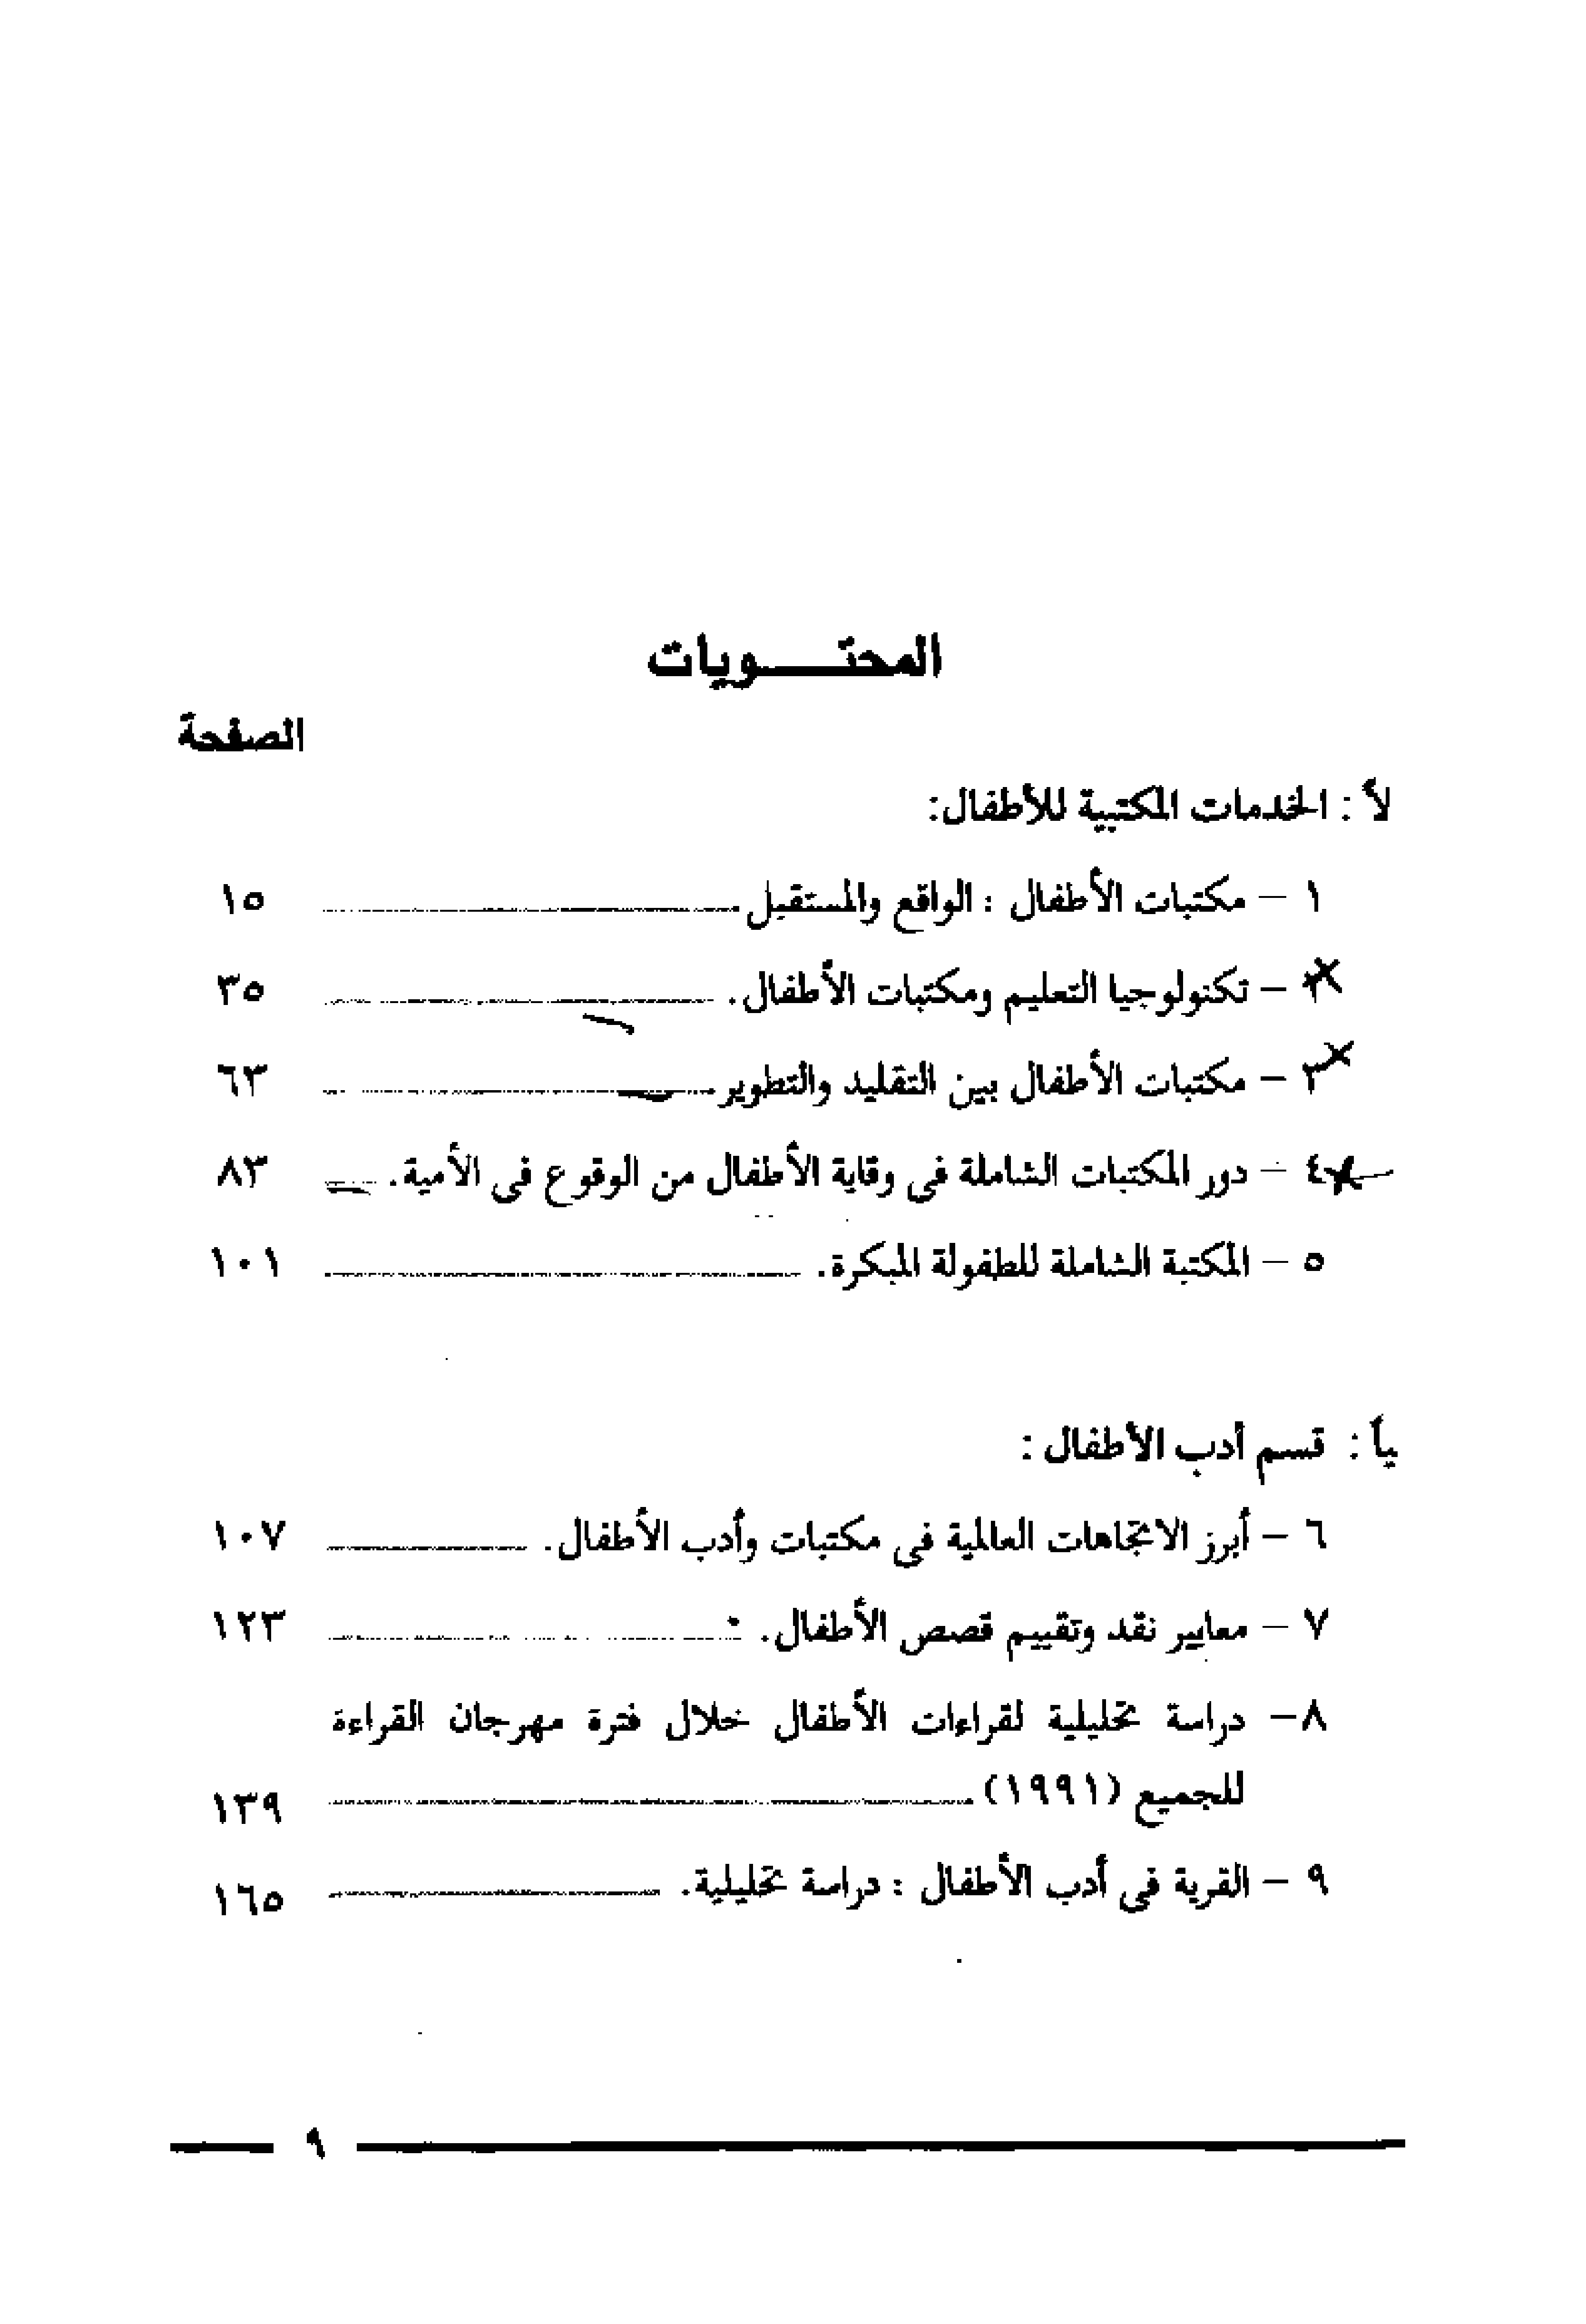 المحتـــويات
الصفحة
لأ : الخدمات المكتبية للأطفال:
١ – مكتبات الأطفال : الواقع والمستقبل. ١٥
٢ – تكنولوجيا التعليم ومكتبات الأطفال. ٣٥
٣ – مكتبات الأطفال بين التقليد والتطوير. ٦٣
٤ – دور المكتبات الشاملة فى وقاية الأطفال من الوقوع فى الأمية. ٨٣
٥ – المكتبة الشاملة للطفولة المبكرة. ١٠١
يأ : قسم أدب الأطفال :
٦ – أبرز الاتجاهات العالمية فى مكتبات وأدب الأطفال. ١٠٧
٧ – معايير نقد وتقييم قصص الأطفال. ١٢٣
٨– دراسة تحليلية لقراءات الأطفال خلال فترة مهرجان القراءة
للجميع (١٩٩١). ١٣٩
٩ – القرية فى أدب الأطفال : دراسة تحليلية. ١٦٥
٩